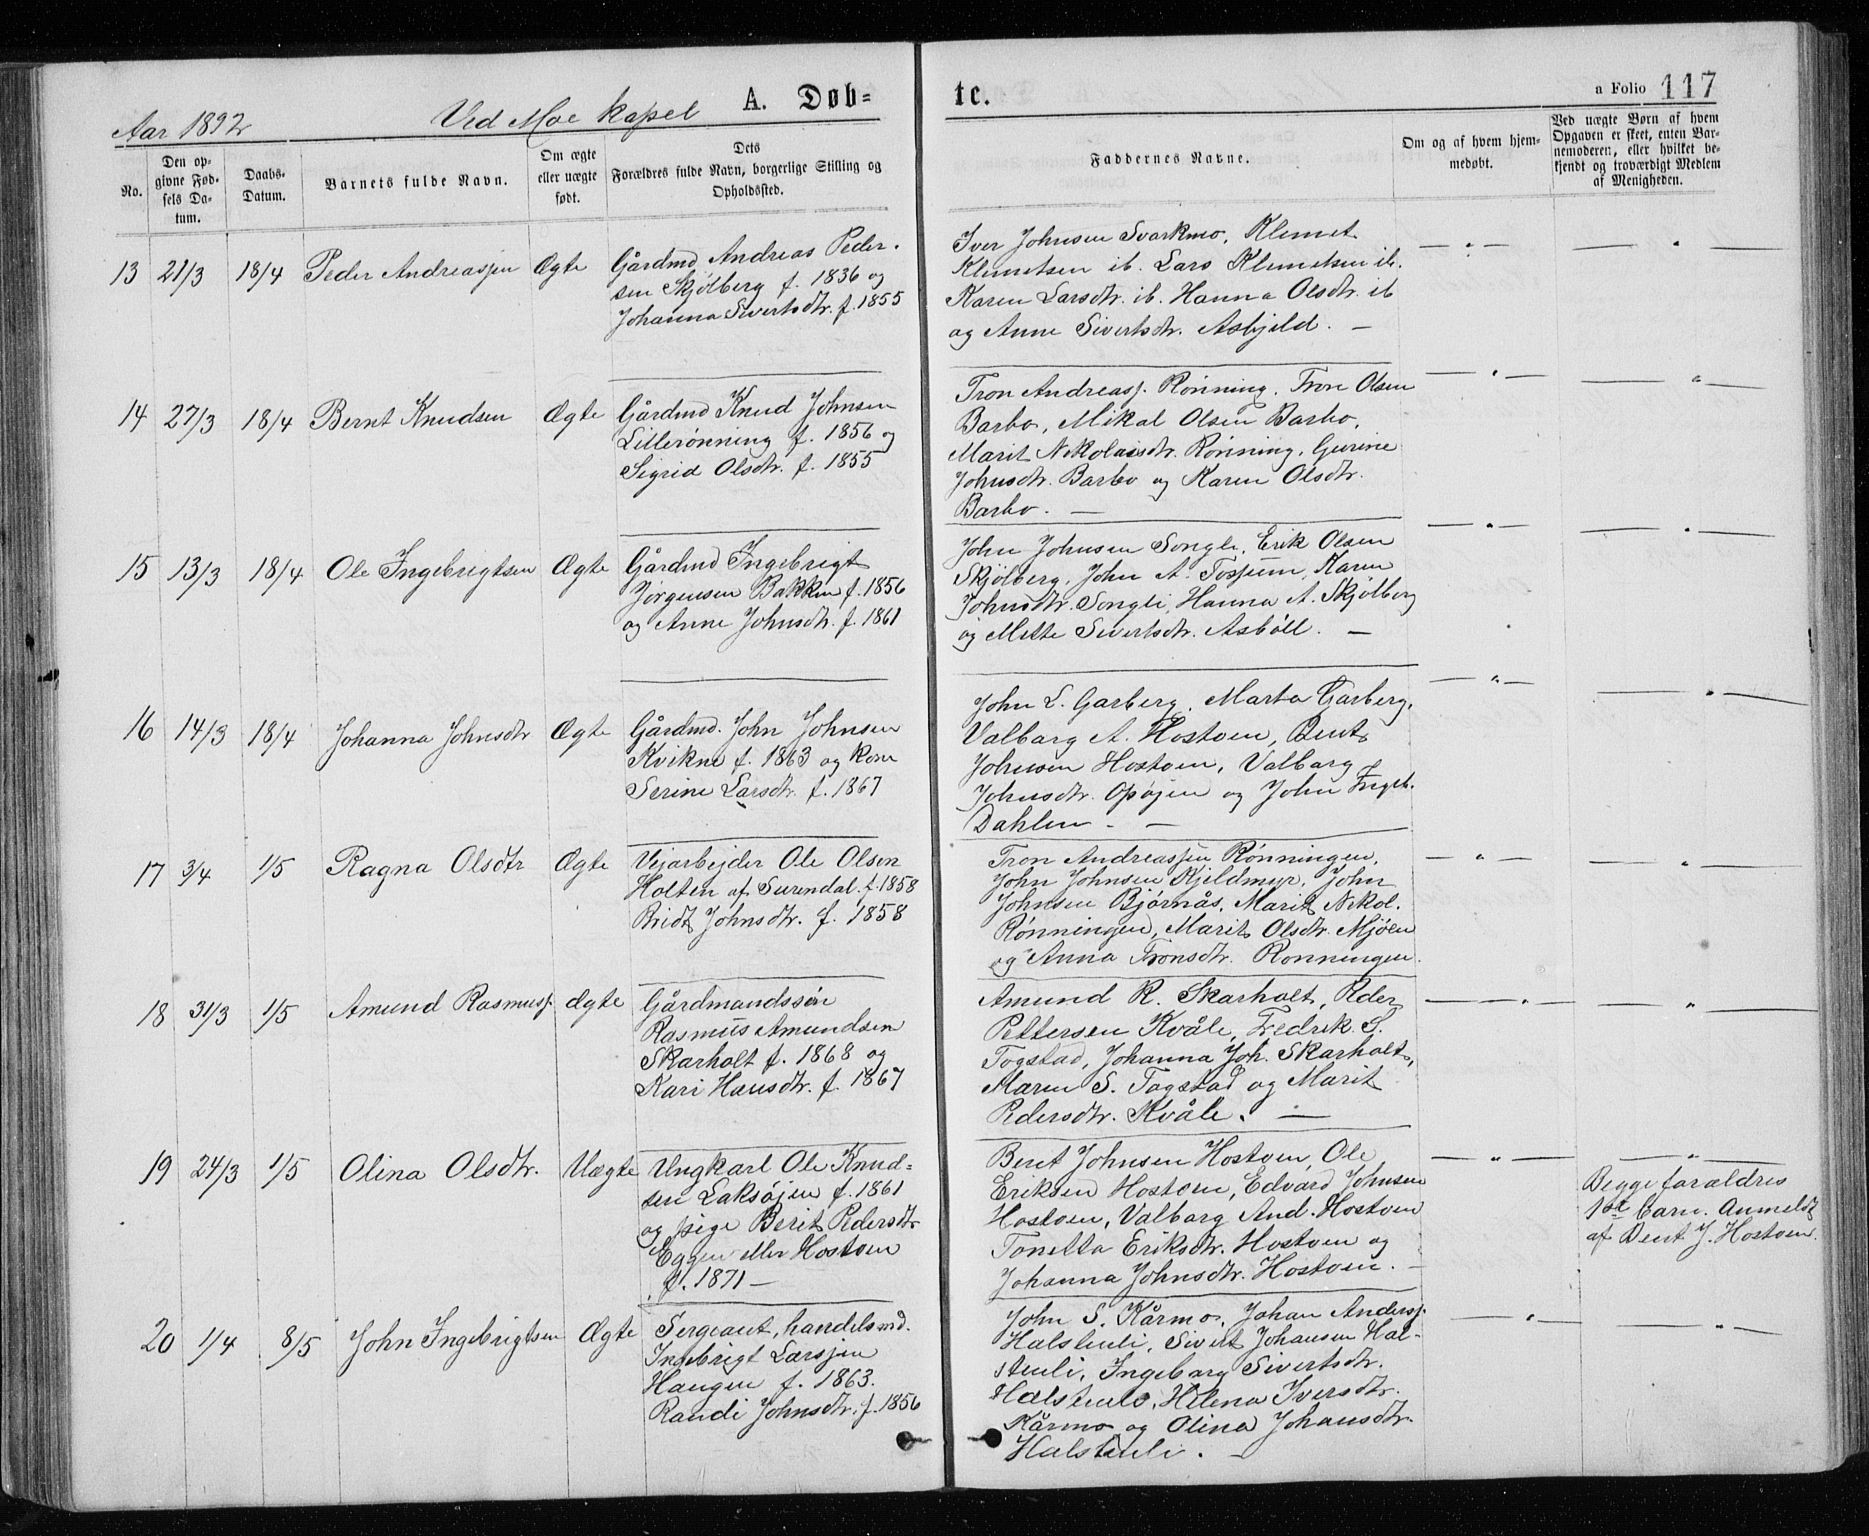 Aar 1892
Ved Moe kapel
A. Døb=
te.
a Folio 117
No.
Den op-
givne Fød-
sels Da-
tum.
Daabs-
Datum.
Barnets fulde Navn.
Om ægte
eller uægte
født.
Dets
Forældres fulde Navn, borgerlige Stilling og
Opholdssted.
Faddernes Navne.
Om og af hvem hjem-
medøbt.
Ved uægte Børn af hvem
Opgaven er skeet, enten Bar-
nemoderen, eller hvilket be-
kjendt og troværdigt Medlem
af Menigheden.
13 21/3 18/4 Peder Andreassen Ægte
Gårdmd Andreas Peder-
sen Skjølberg f. 1836 og
Johanna Sivertsdtr. f. 1855
Iver Johnsen Svarkmo, Klemet
Klemetsen ib. Lars Klemetsen ib.
Karen Larsdtr. ib. Hanna Olsdtr. ib
og Anne Sivertsdtr. Asbjeld. —
— " —
— " —
14 27/3 18/4 Bernt Knudsen Ægte
Gårdmd Knud Johnsen
Lillerønning f. 1856 og
Sigrid Olsdtr. f. 1855
Tron Andreass. Rønning, Tron Olsen
Barbo, Mikal Olsen Barbo,
Marit Nikolaisdtr. Rønning, Gurine
Johnsdtr. Barbo og Karen Olsdtr.
Barbo. —
— " —
— " —
15 13/3 18/4 Ole Ingebrigtsen Ægte
Gårdmd Ingebrigt
Jørgensen Bakken f. 1856
og Anne Johnsdtr. f. 1861
John Johnsen Songli, Erik Olsen
Skjølberg, John A. Fossum, Karen
Johnsdtr. Songli, Hanna A. Skjølberg
og Mette Sivertsdtr. Asbøll. —
— " —
— " —
16 14/3 18/4 Johanna Johnsdtr Ægte
Gårdmd. John Johnsen
Kvikne f. 1863 og kone
Serine Larsdtr. f. 1867
John L. Garberg, Marta Garberg,
Valbarg A. Hostoen, Bent
Johnsen Hostoen, Valbarg
Johnsdtr. Opøjen og John Ingeb.
Dahlen. —
— " —
— " —
17 3/4 1/5 Ragna Olsdtr Ægte
Vejarbejder Ole Olsen
Holten af Surendal. f. 1858
Bridt Johnsdtr. f. 1858
Tron Andreassen Rønningen,
John Johnsen Kjeldmyr, John
Johnsen Bjørnås, Marit Nikol.
Rønningen, Marit Olsdtr. Mjøen
og Anna Tronsdtr. Rønningen.
— " —
— " —
18 31/3 1/5 Amund Rasmuss. Ægte
Gårdmandssøn
Rasmus Amundsen
Skarholt f. 1868 og
Kari Hansdtr. f. 1867
Amund R. Skarholt, Peder
Pettersen Kvåle, Fredrik S.
Togstad, Johanna Joh. Skarholt,
Maren S. Togstad og Marit
Pedersdtr. Kvåle. —
— " —
— " —
19 24/3 1/5 Olina Olsdtr. Uægte
Ungkarl Ole Knud=
sen Laksøjen f. 1861
og pige Berit Pedersdtr
Eggen eller Hostoen
f. 1871 —
Bent Johnsen Hostoen, Ole
Eriksen Hostoen, Edvard Johnsen
Hostoen, Valbarg And. Hostoen
Tonetta Eriksdtr. Hostoen og
Johanna Johnsdtr. Hostoen. —
— " —
— " —
Begge forældres
1ste barn. Anmeldt
af Bent J. Hostoen.
20 1/4 8/5 John Ingebrigtsen Ægte
Sergeant, handelsmd.
Ingebrigt Larssen
Haugen f. 1863.
Randi Johnsdtr. f. 1856
John S. Kårmo, Johan Anderss.
Halstenli, Sivert Johansen Hal-
stenli, Ingebarg Sivertsdtr.
Halstenli, Helena Iversdtr.
Kårmo og Olina Johansdtr.
Halstenli. —
— " —
— " —